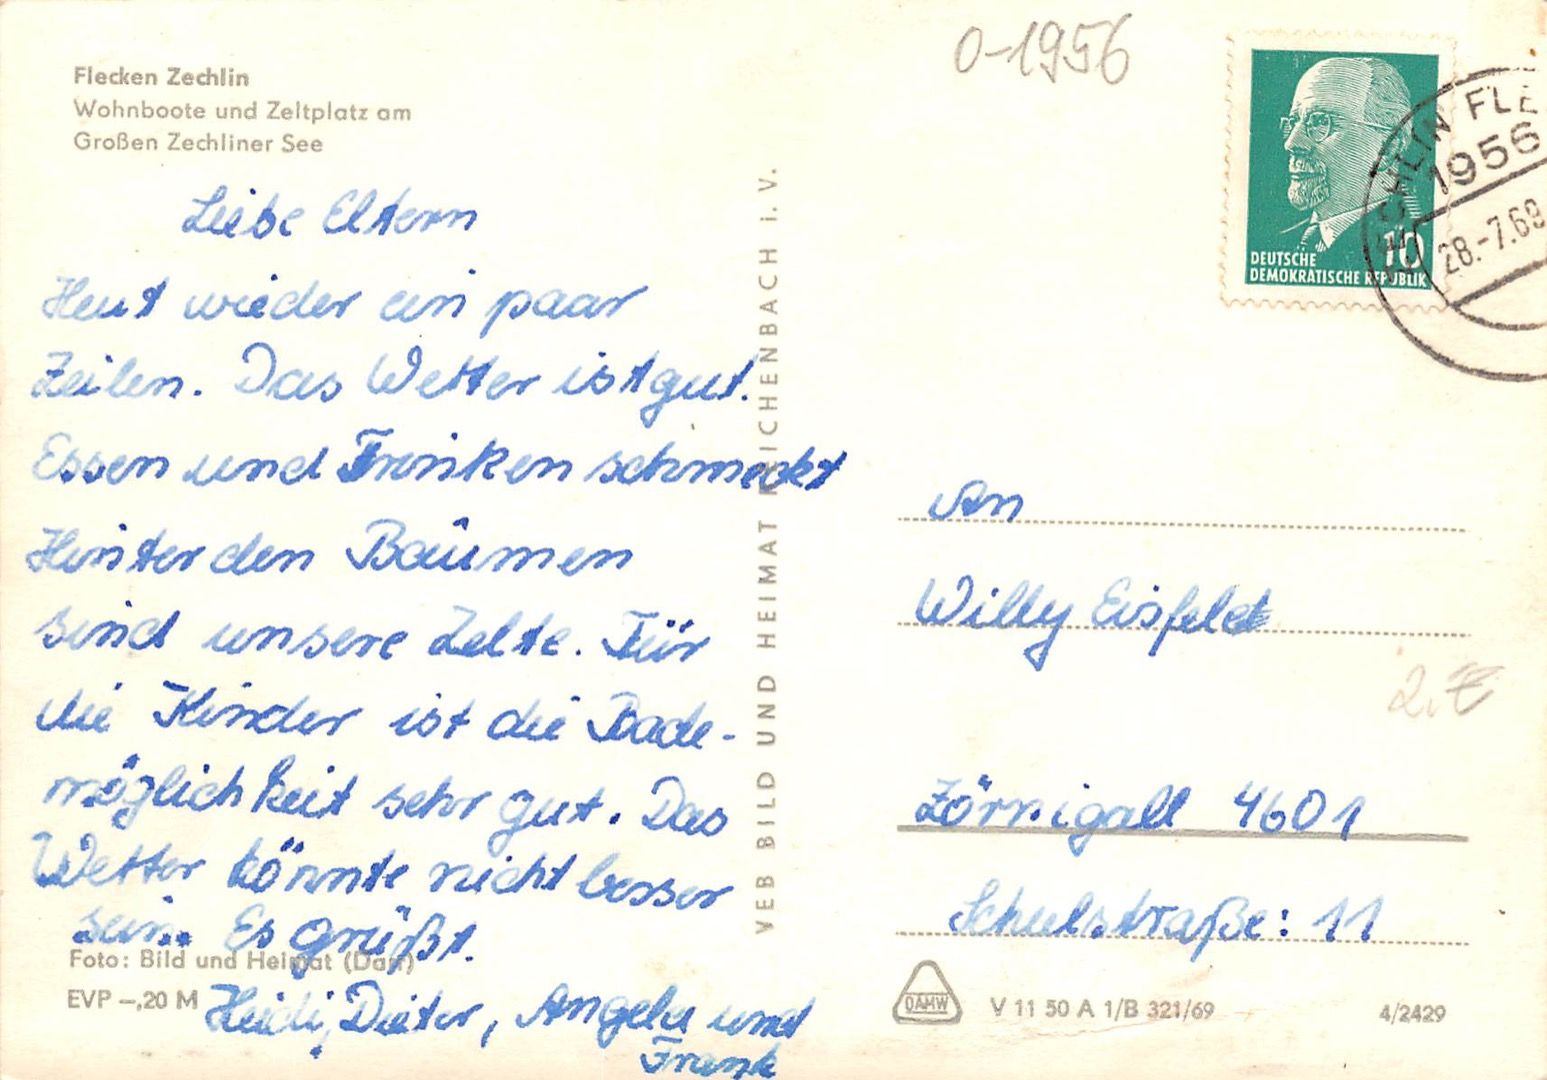 Flecken Zechlin
Wohnboote und Zeltplatz am
Großen Zechliner See
0-1956
DEUTSCHE
DEMOKRATISCHE REPUBLIK
10
ZECHLIN FLE
1956
28.-7.69
Liebe Eltern
Heut wieder ein paar
Zeilen. Das Wetter ist gut.
Essen und Trinken schmeckt
Hinter den Bäumen
sind unsere Zelte. Für
die Kinder ist die Bade-
möglichkeit sehr gut. Das
Wetter könnte nicht besser
sein. Es grüßt.
Heidi, Dieter, Angela und
Frank
Foto: Bild und Heimat (Darr)
EVP -,20 M
VEB BILD UND HEIMAT REICHENBACH i. V.
An
Willy Eisfeld
Zörnigall 4601
Schulstraße: 11
DAMW
V 11 50 A 1/B 321/69
4/2429